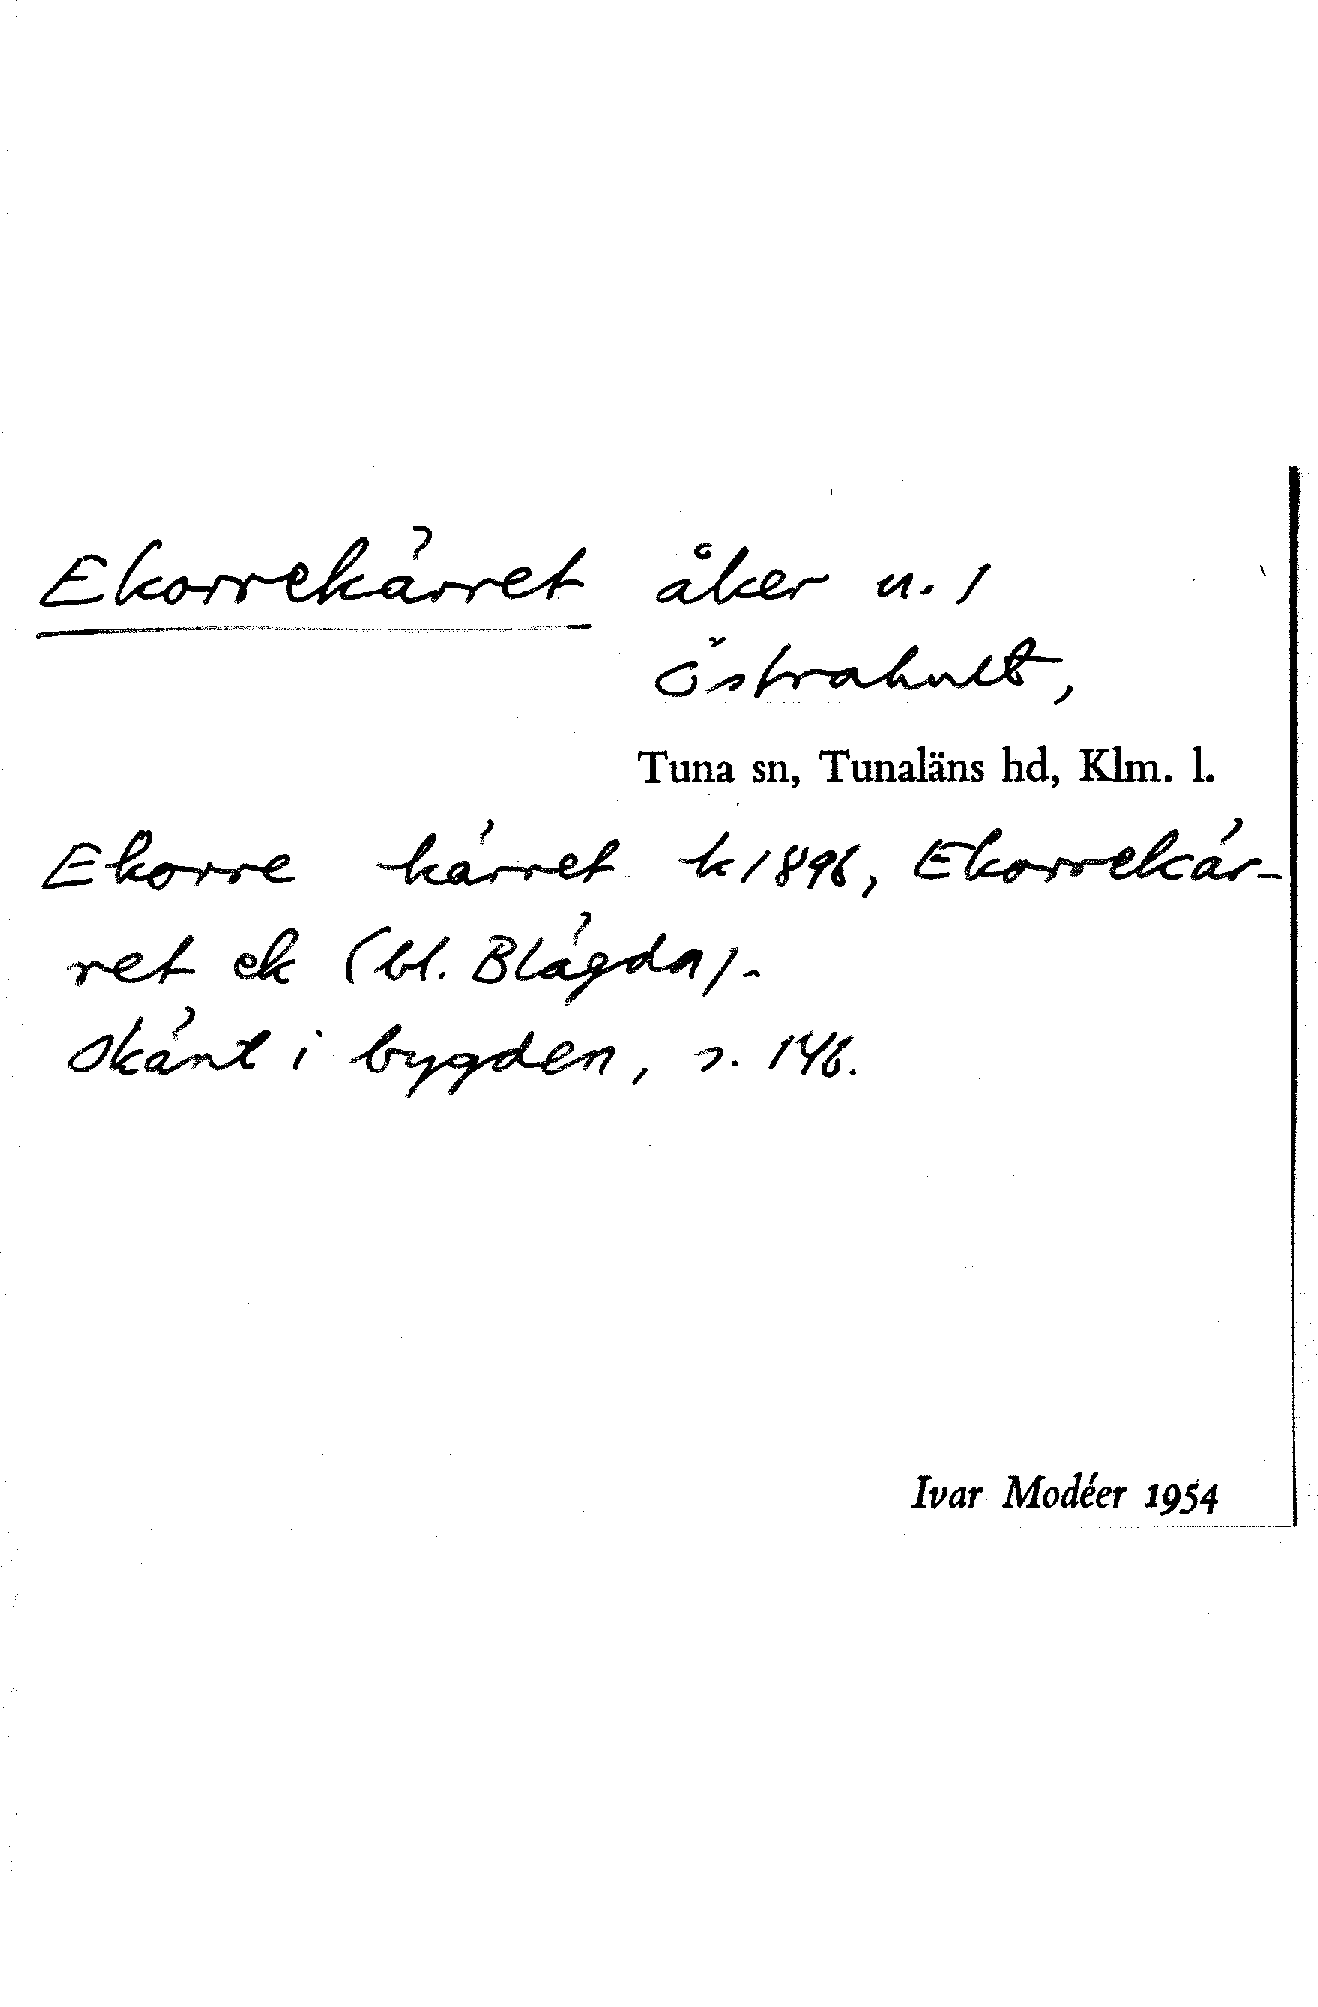 Ekorrekärret åker n. 1
Östrahult,
Tuna sn, Tunaläns hd, Klm. l.
Ekorre kärret k 1896, Ekorrekär-
ret ek (bl. Blågda).
Okänt i bygden, s. 146.
Ivar Modéer 1954